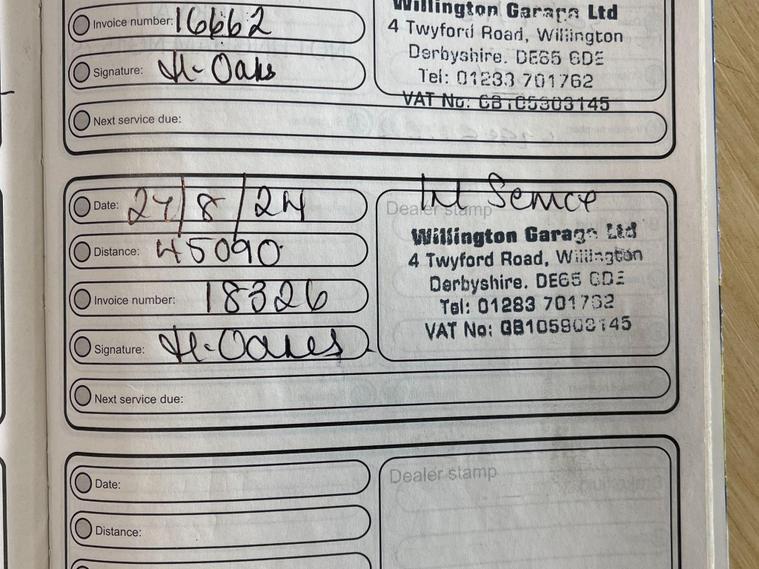 Invoice number: 16662
Signature: H. Oakes
Next service due:
Willington Garage Ltd
4 Twyford Road, Willington
Derbyshire. DE65 0DE
Tel: 01283 701762
VAT No: GB105903145
Date: 27/8/24
Distance: 45090
Invoice number: 18326
Signature: H. Oakes
Next service due:
Int Service
Dealer stamp
Willington Garage Ltd
4 Twyford Road, Willington
Derbyshire. DE65 0DE
Tel: 01283 701762
VAT No: GB105903145
Date:
Distance:
Dealer stamp